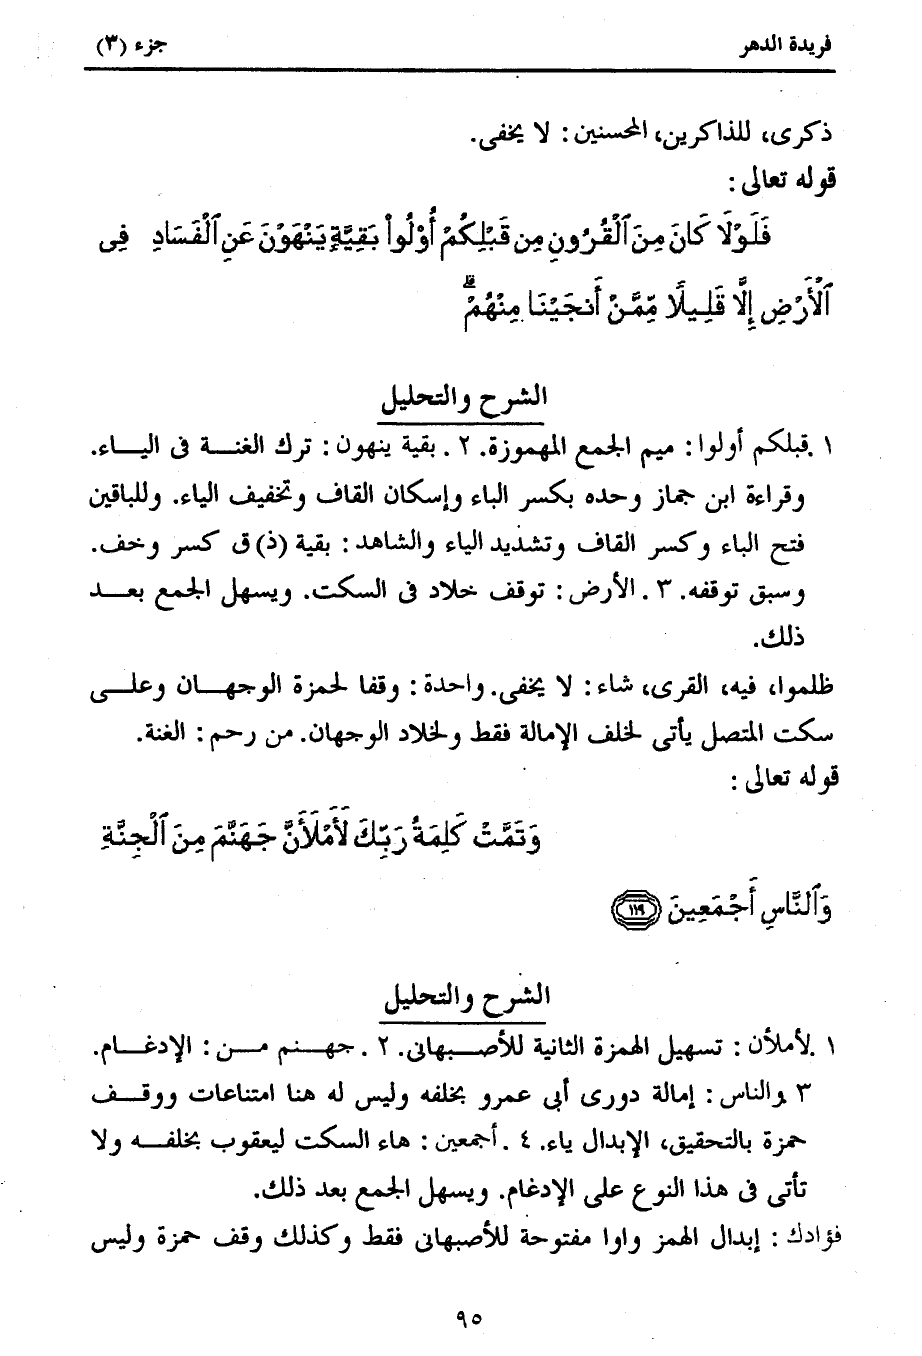 فريدة الدهر
جزء (٣)
ذكرى، للذاكرين، المحسنين: لا يخفى.
قوله تعالى:
فَلَوْلَا كَانَ مِنَ ٱلْقُرُونِ مِن قَبْلِكُمْ أُوْلُواْ بَقِيَّةٍ يَنْهَوْنَ عَنِ ٱلْفَسَادِ فِى
ٱلْأَرْضِ إِلَّا قَلِيلًا مِّمَّنْ أَنجَيْنَا مِنْهُمْ ۗ
الشرح والتحليل
١. قبلكم أولوا: ميم الجمع المهموزة. ٢. بقية ينهون: ترك الغنة فى الياء.
وقراءة ابن جماز وحده بكسر الباء وإسكان القاف وتخفيف الياء. وللباقين
فتح الباء وكسر القاف وتشديد الياء والشاهد: بقية (ذ)ق كسر وخف.
وسبق توقفه. ٣. الأرض: توقف خلاد فى السكت. ويسهل الجمع بعد
ذلك.
ظلموا، فيه، القرى، شاء: لا يخفى. واحدة: وقفا لحمزة الوجهان وعلى
سكت المتصل يأتى لخلف الإمالة فقط ولخلاد الوجهان. من رحم: الغنة.
قوله تعالى:
وَتَمَّتْ كَلِمَةُ رَبِّكَ لَأَمْلَأَنَّ جَهَنَّمَ مِنَ ٱلْجِنَّةِ
وَٱلنَّاسِ أَجْمَعِينَ ١١٩
الشرح والتحليل
١. لأملأن: تسهيل الهمزة الثانية للأصبهانى. ٢. جهنم من: الإدغام.
٣. والناس: إمالة دورى أبى عمرو بخلفه وليس له هنا امتناعات ووقف
حمزة بالتحقيق، الإبدال ياء. ٤. أجمعين: هاء السكت ليعقوب بخلفه ولا
تأتى فى هذا النوع على الإدغام. ويسهل الجمع بعد ذلك.
فؤادك: إبدال الهمز واوا مفتوحة للأصبهانى فقط وكذلك وقف حمزة وليس
٩٥